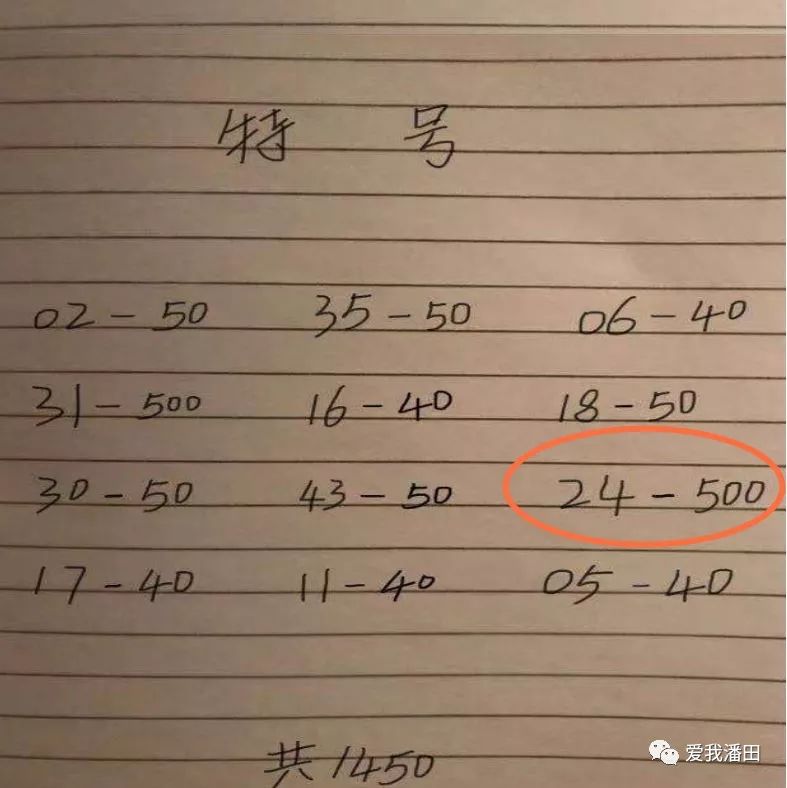 特 号
02-50 35-50 06-40
31-500 16-40 18-50
30-50 43-50 24-500
17-40 11-40 05-40
共1450
爱我潘田